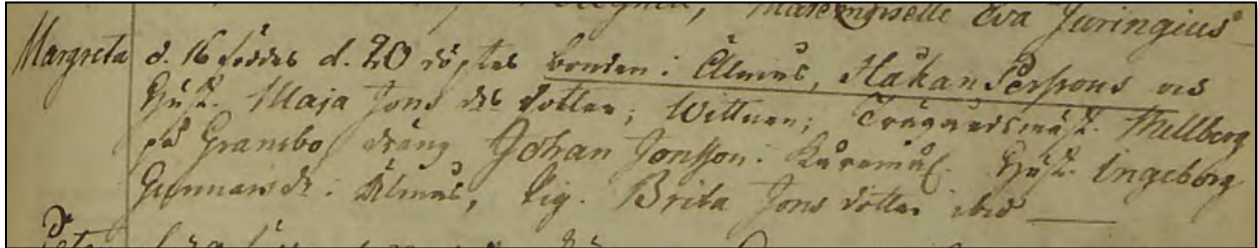 Mademoiselle Eva Juringius
Margreta d. 16 föddes d. 20 döptes bonden i Älmus, Håkan Perssons och
Hust. Maja Jons dr dotter; Wittnen; Trägårdsmäst. Mellberg
på Gransbo dräng Johan Jonsson i Hust. Ingeborg
Gunnarsdr. i Älmus, Pig. Brita Jons dotter ibid